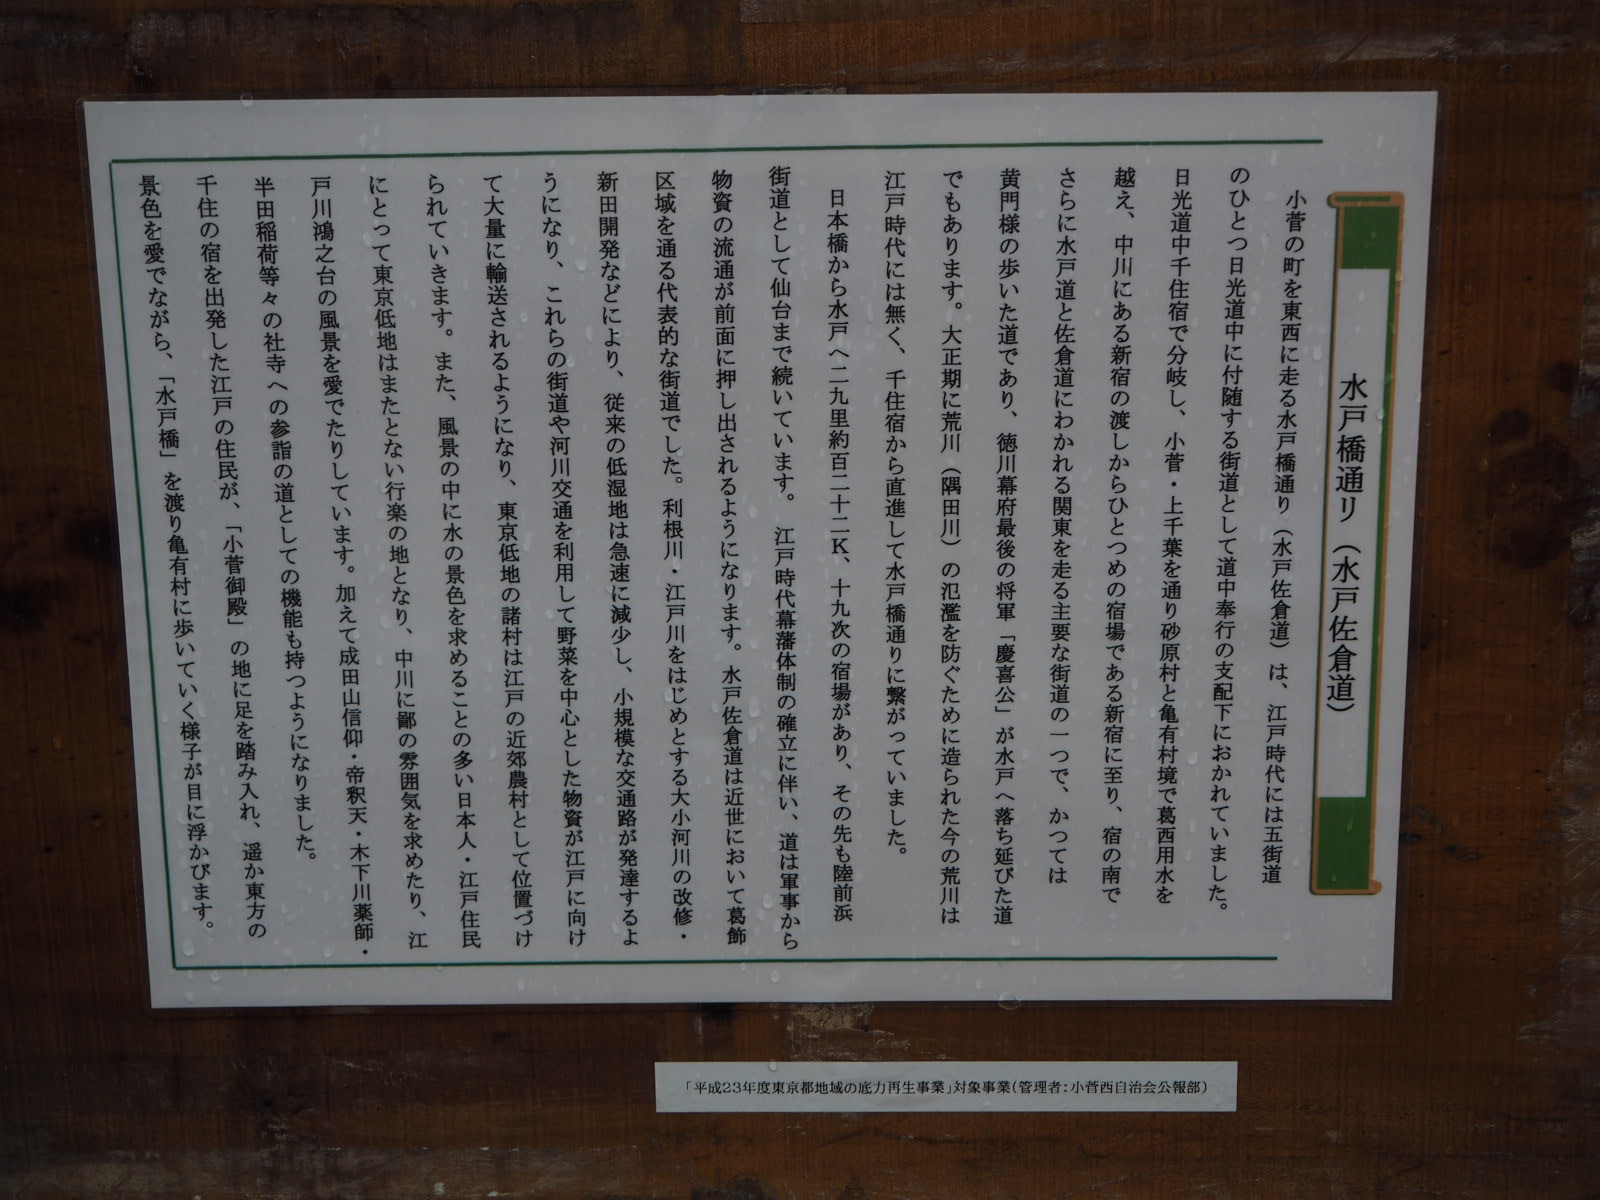 水戸橋通り（水戸佐倉道）
小菅の町を東西に走る水戸橋通り（水戸佐倉道）は、江戸時代には五街道
のひとつ日光道中に付随する街道として道中奉行の支配下におかれていました。
日光道中千住宿で分岐し、小菅・上千葉を通り砂原村と亀有村境で葛西用水を
越え、中川にある新宿の渡しからひとつめの宿場である新宿に至り、宿の南で
さらに水戸道と佐倉道にわかれる関東を走る主要な街道の一つで、かつては
黄門様の歩いた道であり、徳川幕府最後の将軍「慶喜公」が水戸へ落ち延びた道
でもあります。大正期に荒川（隅田川）の氾濫を防ぐために造られた今の荒川は
江戸時代には無く、千住宿から直進して水戸橋通りに繋がっていました。
日本橋から水戸へ二九里約百二十二K、十九次の宿場があり、その先も陸前浜
街道として仙台まで続いています。江戸時代幕藩体制の確立に伴い、道は軍事から
物資の流通が前面に押し出されるようになります。水戸佐倉道は近世において葛飾
区域を通る代表的な街道でした。利根川・江戸川をはじめとする大小河川の改修・
新田開発などにより、従来の低湿地は急速に減少し、小規模な交通路が発達するよ
うになり、これらの街道や河川交通を利用して野菜を中心とした物資が江戸に向け
て大量に輸送されるようになり、東京低地の諸村は江戸の近郊農村として位置づけ
られていきます。また、風景の中に水の景色を求めることの多い日本人・江戸住民
にとって東京低地はまたとない行楽の地となり、中川に鄙の雰囲気を求めたり、江
戸川鴻之台の風景を愛でたりしています。加えて成田山信仰・帝釈天・木下川薬師・
半田稲荷等々の社寺への参詣の道としての機能も持つようになりました。
千住の宿を出発した江戸の住民が、「小菅御殿」の地に足を踏み入れ、遥か東方の
景色を愛でながら、「水戸橋」を渡り亀有村に歩いていく様子が目に浮かびます。
「平成23年度東京都地域の底力再生事業」対象事業（管理者：小菅西自治会公報部）